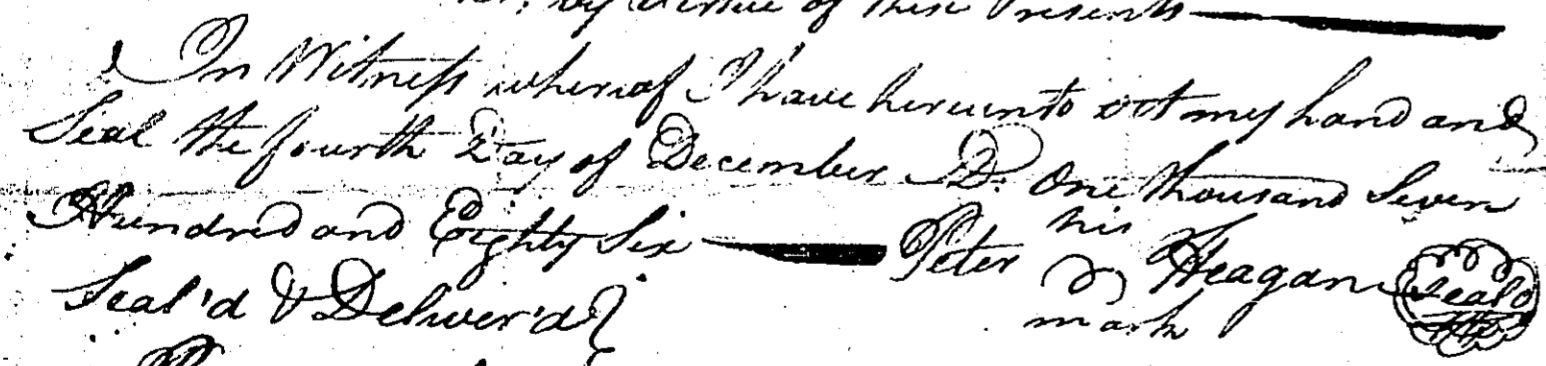 by Virtue of these Presents
In Witness whereof I have hereunto set my hand and
Seal the fourth Day of December AD. One thousand Seven
Hundred and Eighty Six Peter his Heagan seal
mark
Seal'd & Deliver'd